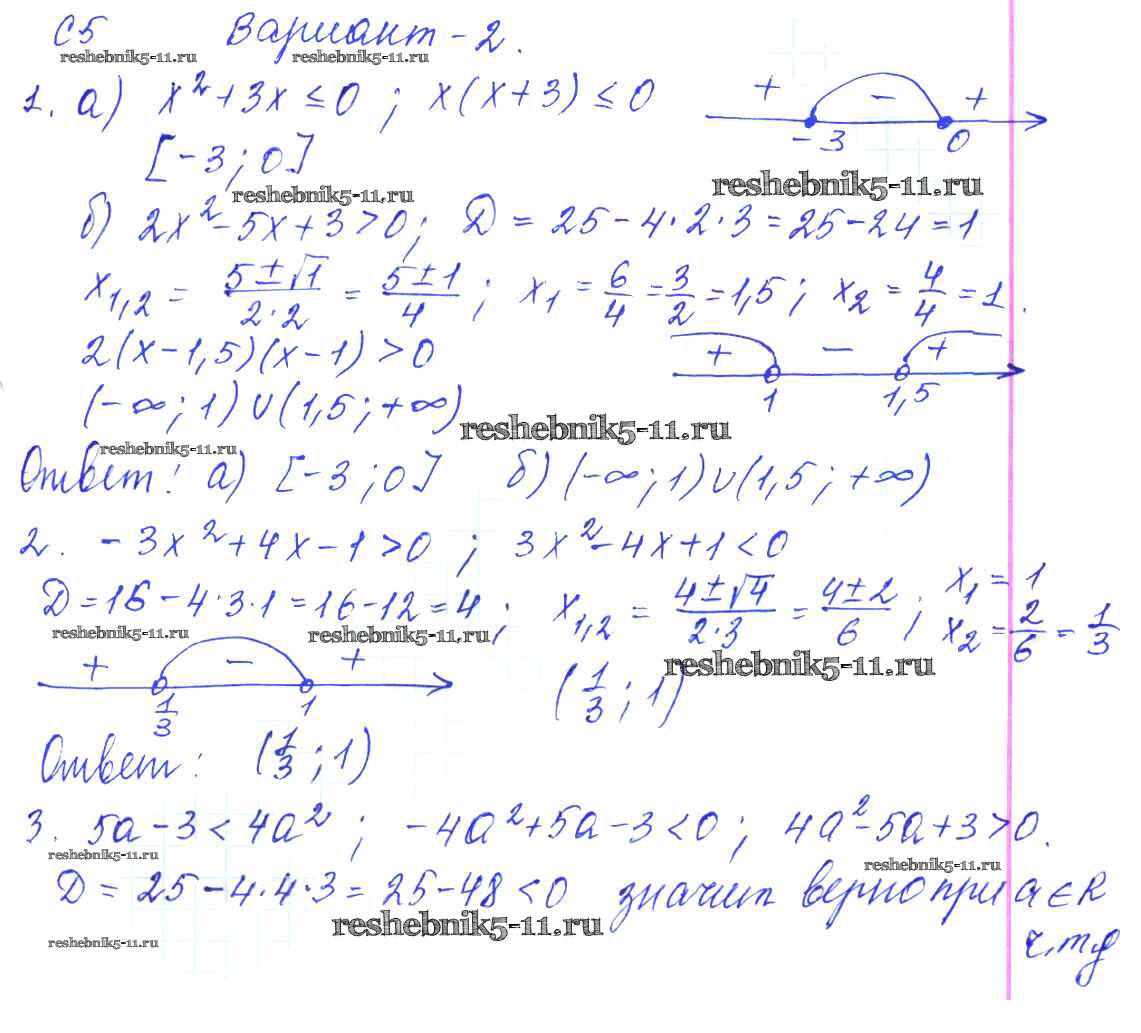 С5 Вариант-2.
reshebnik5-11.ru reshebnik5-11.ru
1. а) x²+3x≤0 ; x(x+3)≤0
+ − +
−3 0
[−3;0]
reshebnik5-11.ru reshebnik5-11.ru
б) 2x²−5x+3>0; D = 25−4·2·3=25−24=1
x₁,₂ = (5±√1)/(2·2) = (5±1)/4 ; x₁ = 6/4 = 3/2 = 1,5 ; x₂ = 4/4 = 1.
2(x−1,5)(x−1)>0
+ − +
1 1,5
(−∞;1)∪(1,5;+∞)
reshebnik5-11.ru
reshebnik5-11.ru
Ответ: а) [−3;0] б) (−∞;1)∪(1,5;+∞)
2. −3x²+4x−1>0 ; 3x²−4x+1<0
D=16−4·3·1=16−12=4; x₁,₂ = (4±√4)/(2·3) = (4±2)/6 ; x₁ = 1
x₂ = 2/6 = 1/3
reshebnik5-11.ru reshebnik5-11.ru reshebnik5-11.ru
+ − +
1/3 1
(1/3;1)
Ответ: (1/3;1)
3. 5a−3<4a² ; −4a²+5a−3<0; 4a²−5a+3>0.
reshebnik5-11.ru reshebnik5-11.ru
D = 25−4·4·3=25−48<0 значит верно при a∈R
reshebnik5-11.ru reshebnik5-11.ru
ч.тд